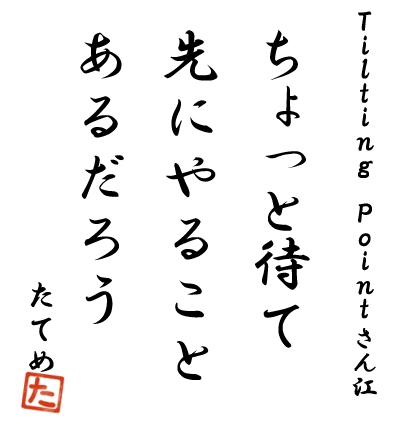 Tilting Pointさん江
ちょっと待て
先にやること
あるだろう
たてめ
た